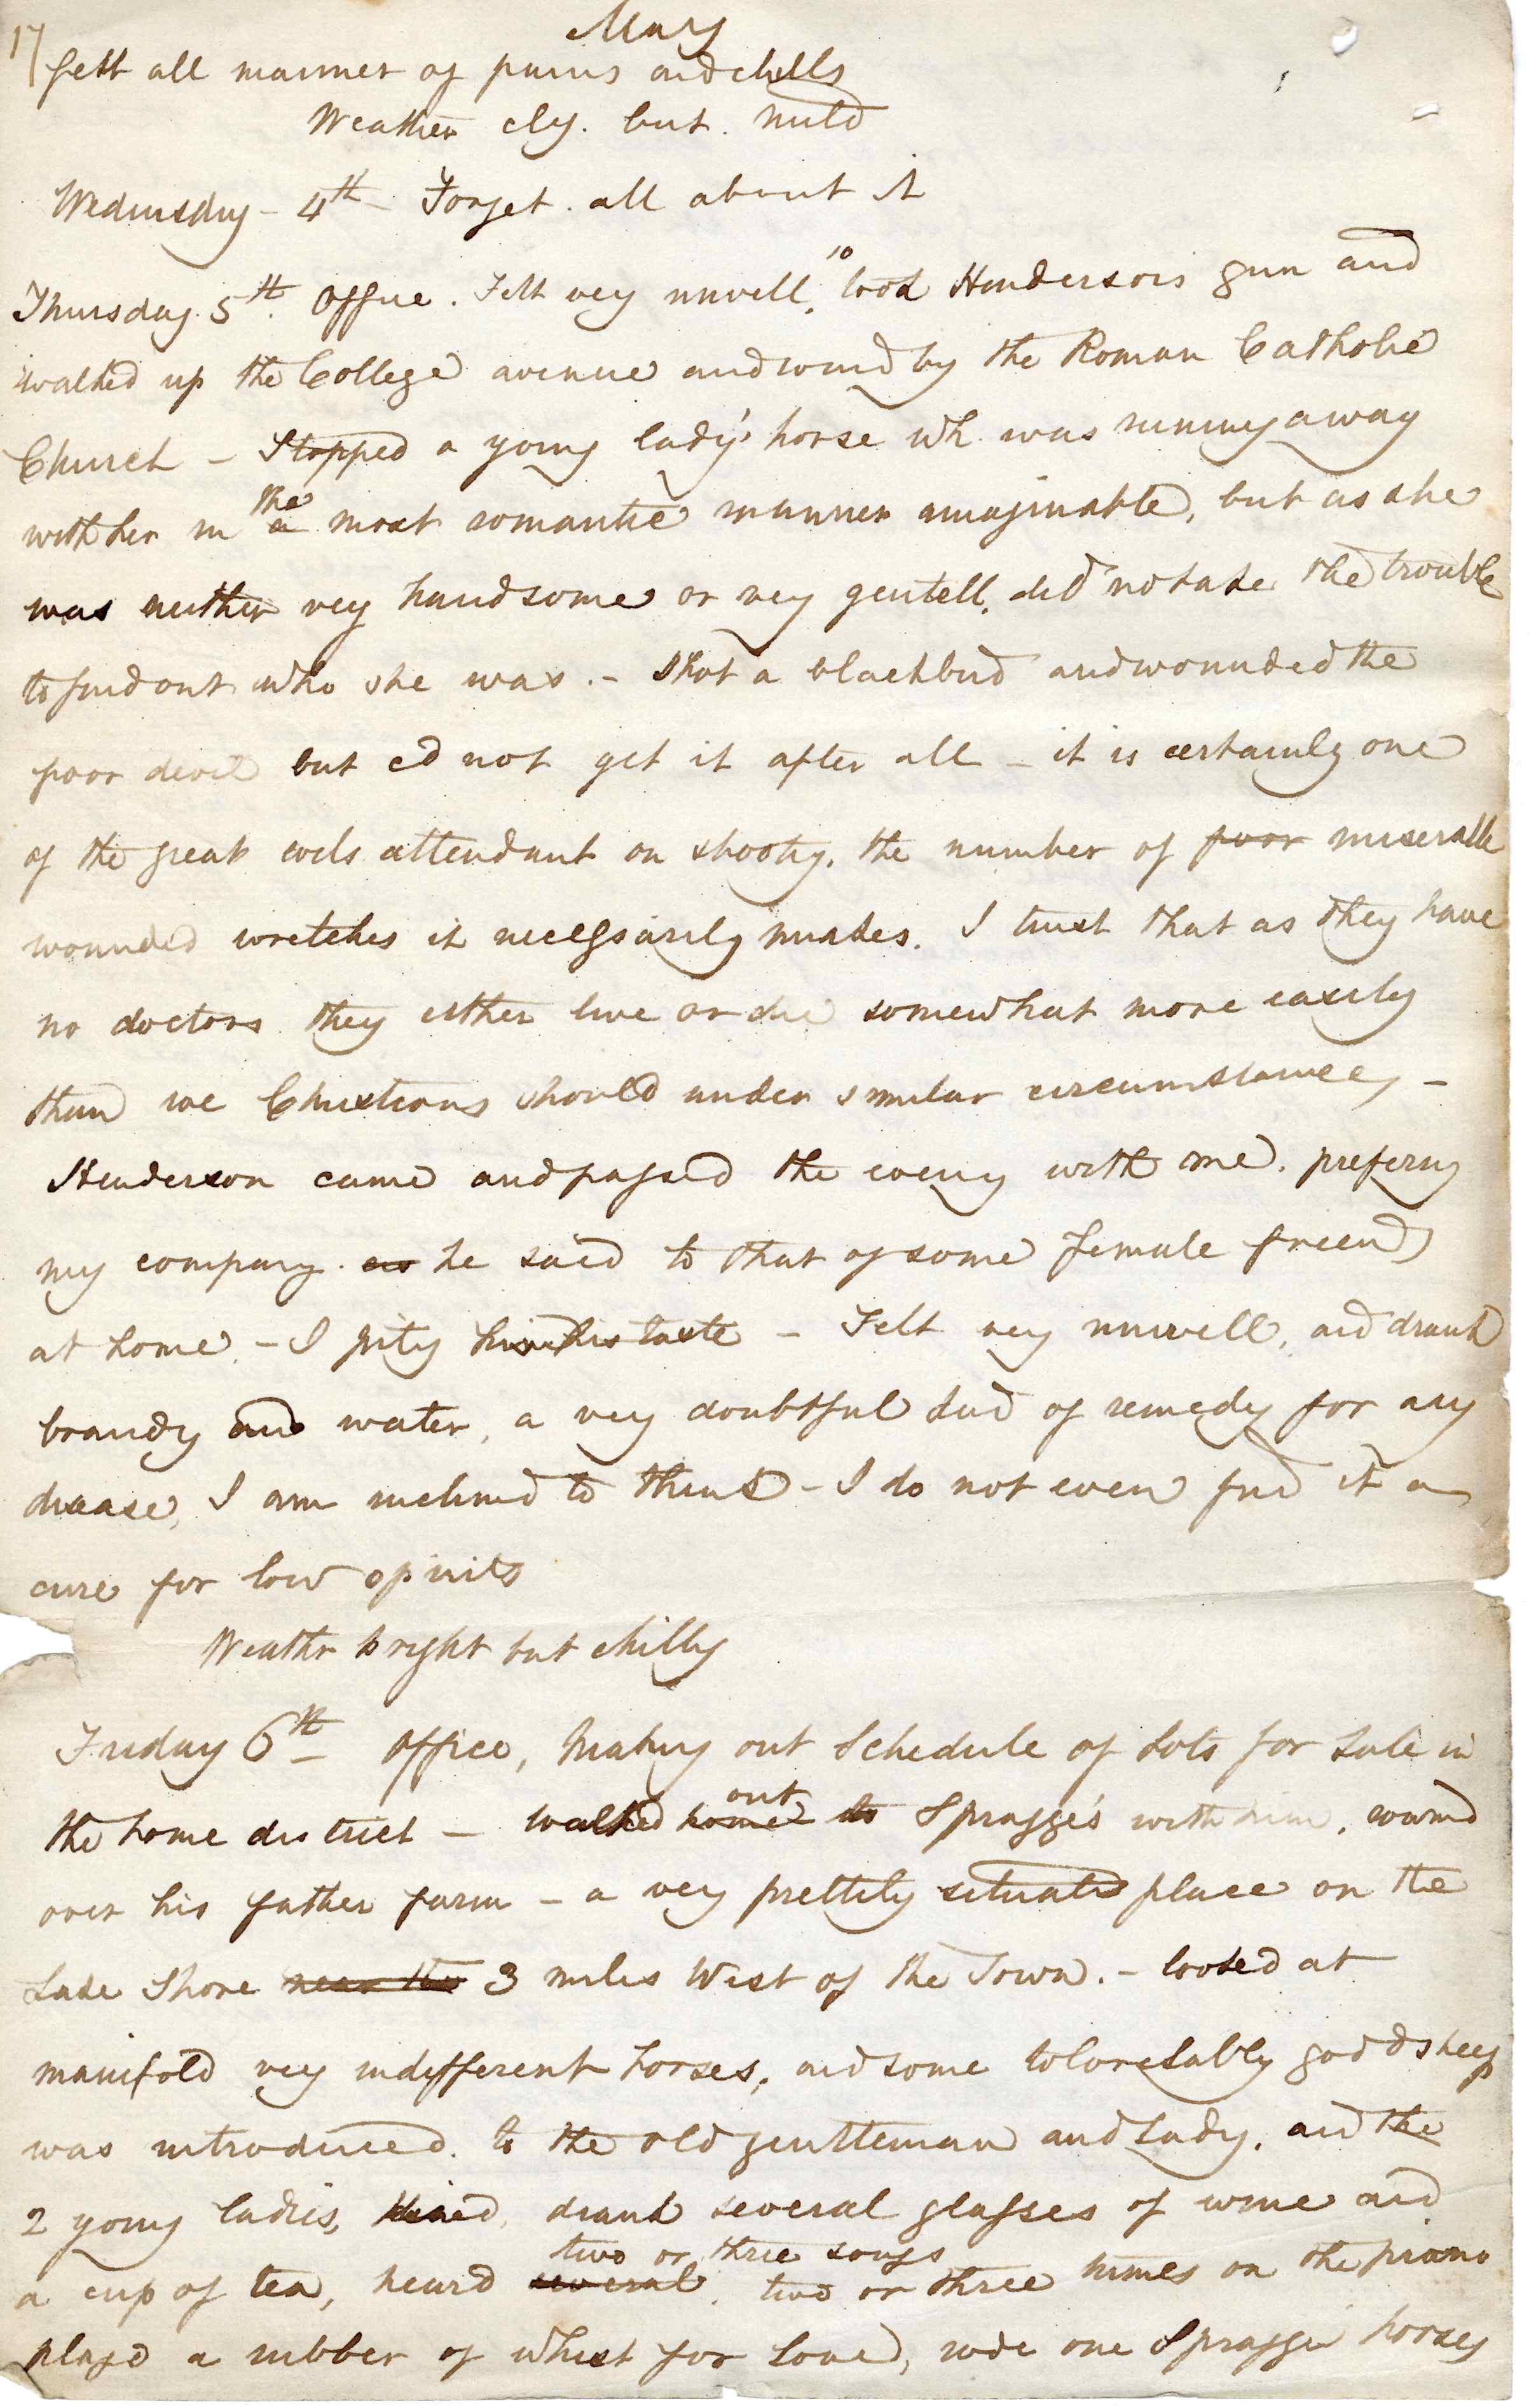 May
17 felt all manner of pains and chills
Weather cly. but mild
Wednesday - 4th - Forget all about it
Thursday 5th. Office. Felt very unwell, took Henderson's gun and
walked up the College avenue and round by the Roman Catholic
Church - Stopped a young lady's horse wh. was running away
with her in a the most romantic manner imaginable, but as she
was neither very handsome or very genteell, did not take the trouble
to find out who she was. - Shot a blackbird and wounded the
poor devil but cd not get it after all - it is certainly one
of the great evils attendant on shooting, the number of poor miserable
wounded wretches it necessarily makes. I trust that as they have
no doctors they either live or die somewhat more easily
than we Christians should under similar circumstances -
Henderson came and passed the eveng with me, prefering
my company as he said to that of some female friends
at home. - I pity him his taste - Felt very unwell, and drank
brandy and water, a very doubtful kind of remedy for any
disease, I am inclined to think - I do not even find it a
cure for low spirits
Weathr bright but chilly
Friday 6th - Office, Making out Schedule of Lots for Sale in
the home district - walked home out to Spragge's with him, roamd
over his father farm - a very prettily situated place on the
Lake Shore near the 3 miles West of the Town. - looked at
manifold very indifferent horses, and some toloretably good sheep
was introduced to the old gentleman and Lady, and the
2 young ladies, dined, drank several glasses of wine and
a cup of tea, heard several two or three songs, two or three tunes on the piano
played a rubber of whist for love, rode one Spragge horses